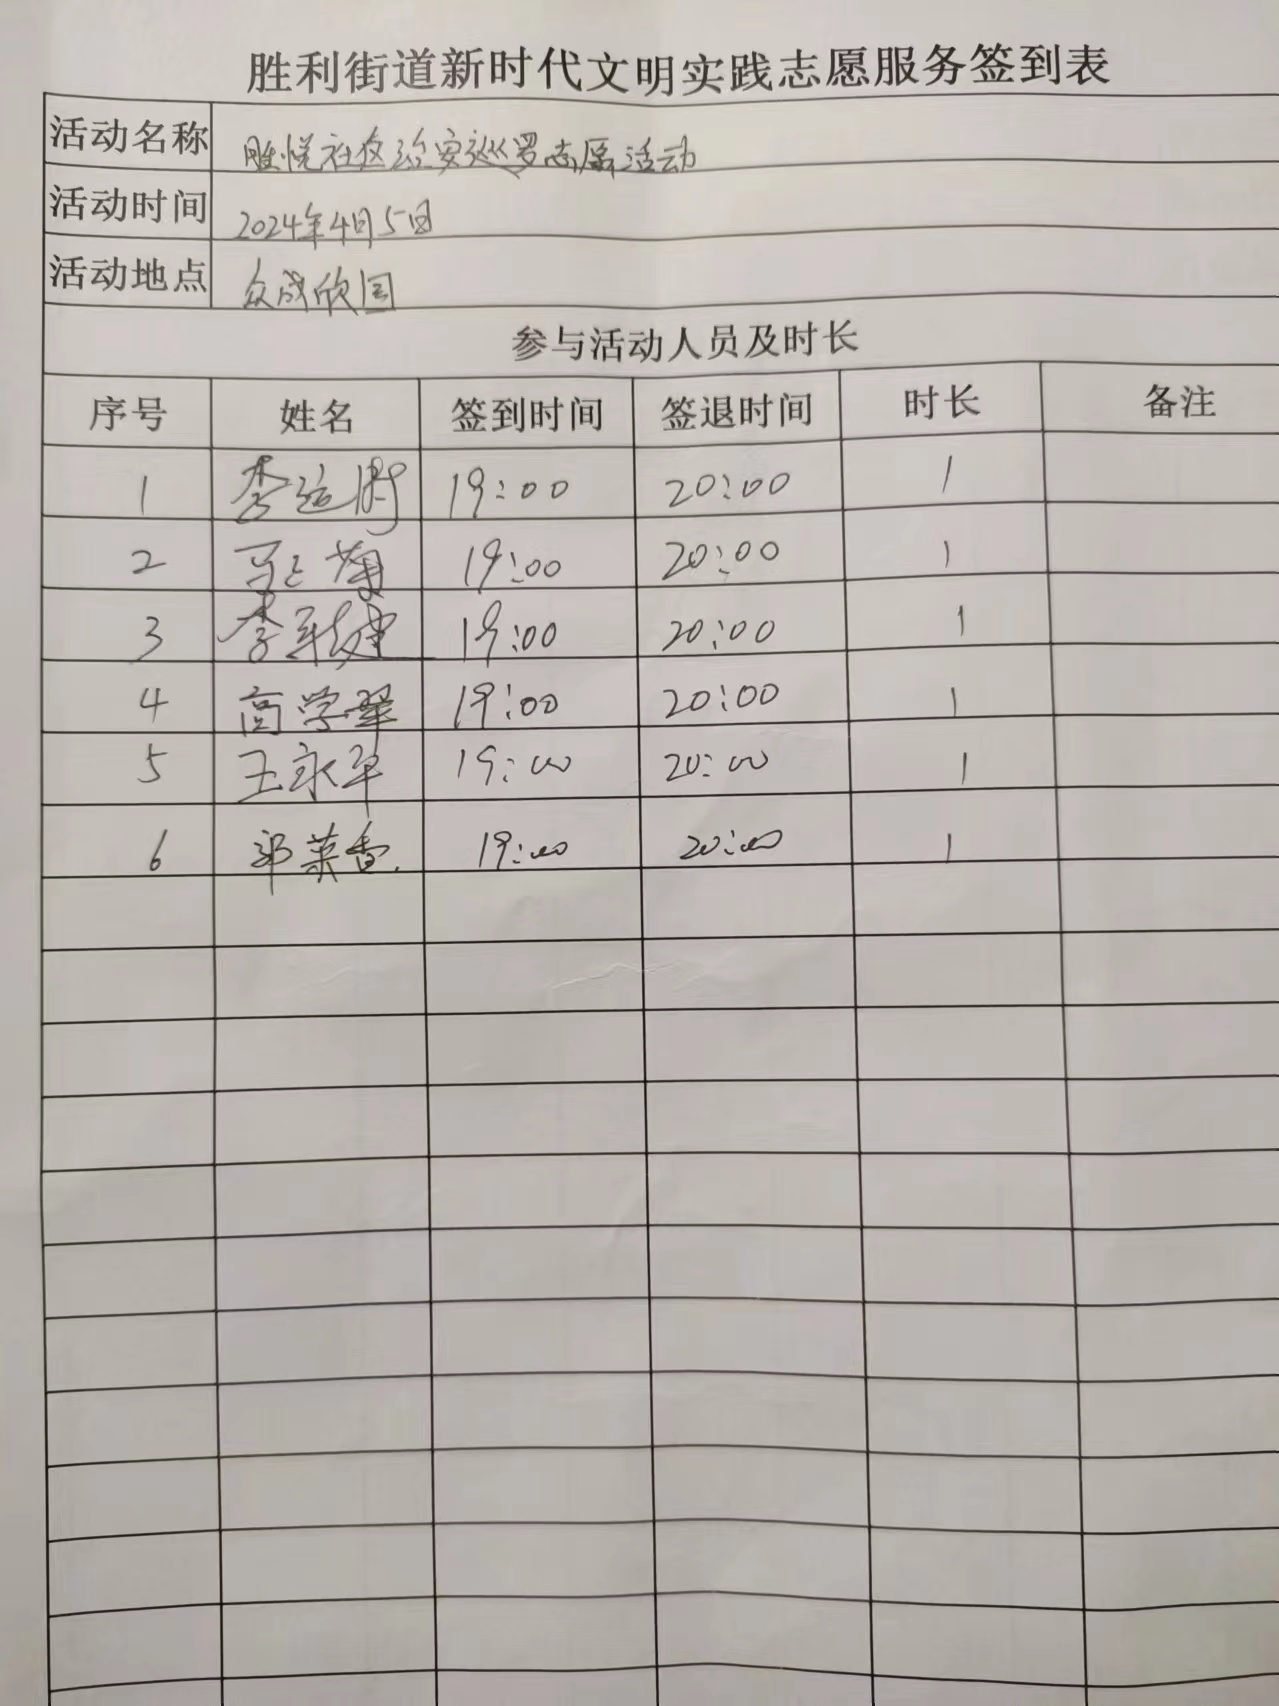 胜利街道新时代文明实践志愿服务签到表
活动名称 胜悦社区治安巡逻志愿活动
活动时间 2024年4月5日
活动地点 众成欣园
参与活动人员及时长
序号 姓名 签到时间 签退时间 时长 备注
1 李运 19:00 20:00 1
2 19:00 20:00 1
3 李 建 19:00 20:00 1
4 高学翠 19:00 20:00 1
5 王永平 19:00 20:00 1
6 邓英香 19:00 20:00 1